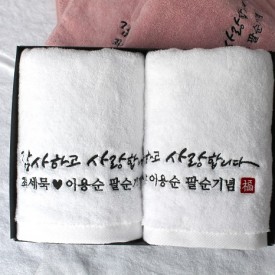 감사하고 사랑합니다
하고 사랑합니다
최세묵♥이용순 팔순기
이용순 팔순기념 福